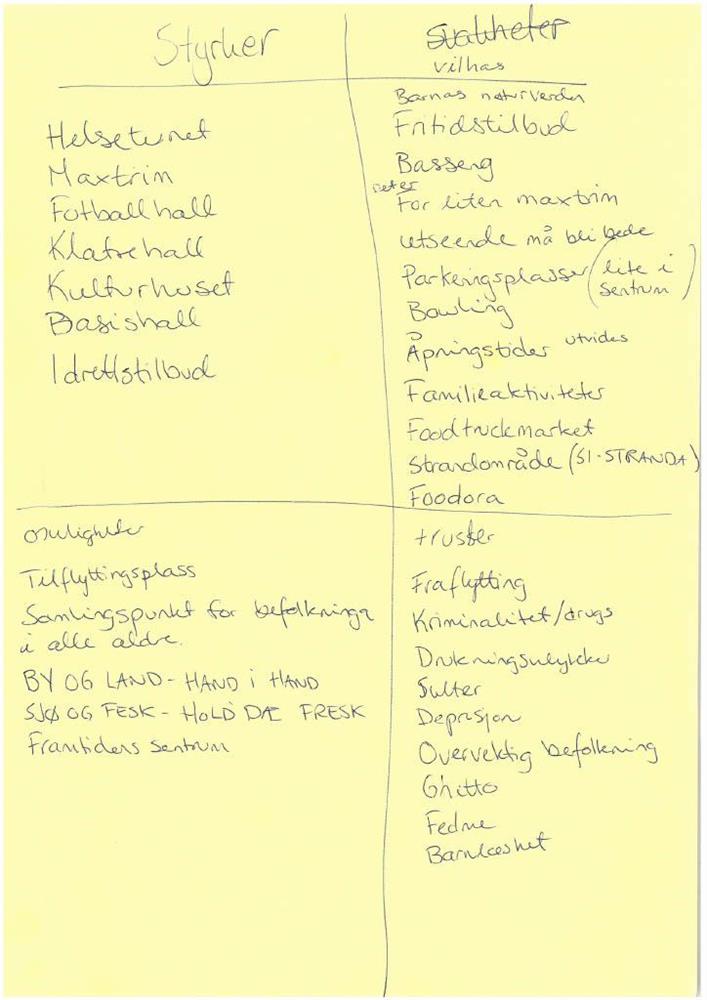 Styrker
Helsetunet
Maxtrim
Fotballhall
Klatrehall
Kulturhuset
Basishall
Idrettstilbud
Svakheter
vilhas
Barnas naturverden
Fritidstilbud
Basseng
For liten maxtrim
utseende må bli bede
Parkeringsplasser (lite i
sentrum)
Bowling
Åpningstider utvides
Familieaktiviteter
Foodtruckmarket
Strandområde (SI-STRANDA)
Foodora
muligheter
Tilflyttingsplass
Samlingspunkt for befolkninga
i alle aldre.
BY OG LAND - HAND i HAND
SJØ OG FESK - HOLD DÆ FRESK
Framtidens sentrum
trusler
Fraflytting
Kriminalitet/drugs
Drukningsulykke
Sulter
Depresjon
Overvektig befolkning
Ghitto
Fedme
Barnløshet